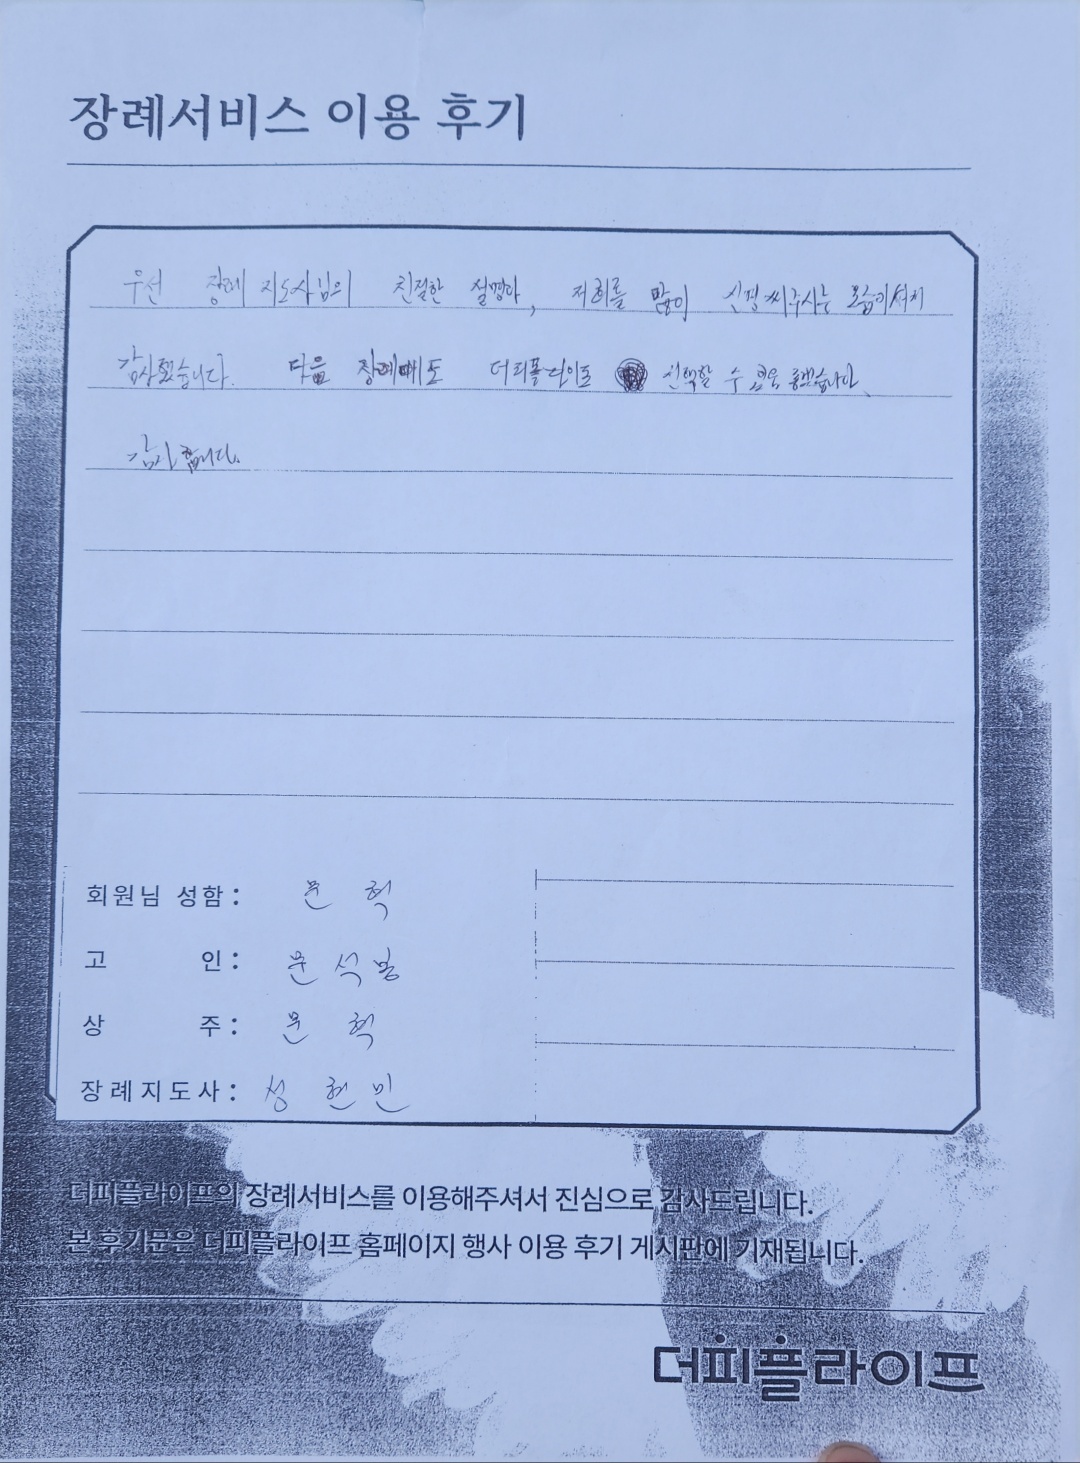 장례서비스 이용 후기
우선 장례 지도사님의 친절한 설명과, 저희를 많이 신경써주시는 모습이셔서
감사했습니다. 다음 장례때도 더피플라이프 선택할 수 있음 좋겠습니다.
감사합니다.
회원님 성함 : 문 혁
고 인 : 문석봉
상 주 : 문 혁
장례지도사 : 성현민
더피플라이프의 장례서비스를 이용해주셔서 진심으로 감사드립니다.
본 후기문은 더피플라이프 홈페이지 행사 이용 후기 게시판에 기재됩니다.
더피플라이프